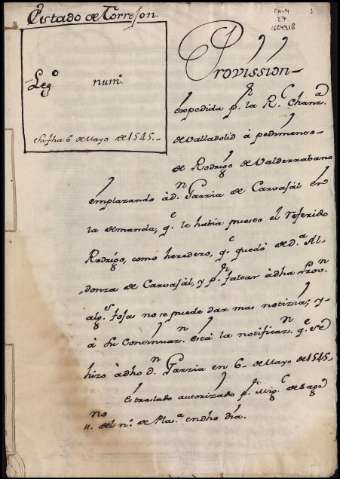 Estado de Torrejon.
Leg.º num.º
Su fha 6 de Mayo de 1545.
Provission
expedida p.r la R.l Chanz.a
de Valladolid à pedimento
de Rodrigo de Valderrabano
emplazando à d.n Garzia de Carvajàl en
la demanda, q.e le havia puesto el referido
Rodrigo, como heredero, q.e quedò de d.a Al-
donza de Carvajàl, y p.r faltar à dha Prov.n
alg.s fojas no se puede dar mas notizia, y
à su Continuaz.n està la notificaz.n q.e se
hizo à dho d.n Garzia en 6 de Mayo de 1545
es traslado autorizado p.r Mig.l de
no
del n.º de Pla.a en dho dia.